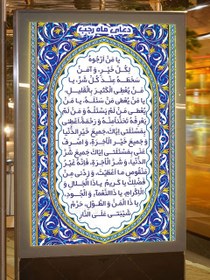 دعای ماه رجب
یا مَنْ اَرْجُوهُ
لِکُلِّ خَیْرٍ، وَ آمَنُ
سَخَطَهُ عِنْدَ کُلِّ شَرٍّ، یا
مَنْ یُعْطِی الْکَثِیرَ بِالْقَلِیلِ،
یا مَنْ یُعْطِی مَنْ سَئَلَهُ، یا مَنْ
یُعْطِی مَنْ لَمْ یَسْئَلْهُ وَ مَنْ لَمْ
یَعْرِفْهُ تَحَنُّناً مِنْهُ وَ رَحْمَةً، اَعْطِنِی
بِمَسْئَلَتِی اِیَّاکَ جَمِیعَ خَیْرِ الدُّنْیا
وَ جَمِیعَ خَیْرِ الْآخِرَةِ، وَ اصْرِفْ
عَنِّی بِمَسْئَلَتِی اِیَّاکَ جَمِیعَ شَرِّ
الدُّنْیا، وَ شَرِّ الْآخِرَةِ، فَاِنَّهُ غَیْرُ
مَنْقُوصٍ ما اَعْطَیْتَ، وَ زِدْنِی مِنْ
فَضْلِکَ یا کَرِیمُ. یا ذَا الْجَلالِ وَ
الْاِکْرامِ، یا ذَا النَّعْماءِ وَ الْجُودِ،
یا ذَا الْمَنِّ وَ الطَّوْلِ، حَرِّمْ
شَیْبَتِی عَلَی النَّارِ